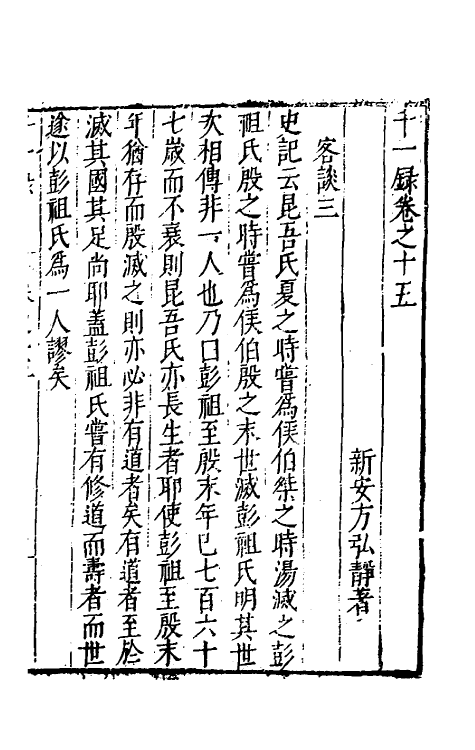 千一録卷之十五
新安方弘靜著
客談三
史記云昆吾氏夏之時嘗爲侯伯桀之時湯滅之彭
祖氏殷之時嘗爲侯伯殷之末世滅彭祖氏明其世
次相傳非一人也乃曰彭祖至殷末年已七百六十
七歲而不衰則昆吾氏亦長生者耶使彭祖至殷末
年猶存而殷滅之則亦必非有道者矣有道者至於
滅其國其足尚耶蓋彭祖氏嘗有修道而壽者而世
遂以彭祖氏爲一人謬矣